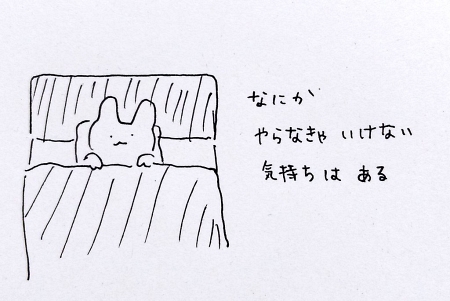 なにか
やらなきゃ いけない
気持ちは ある